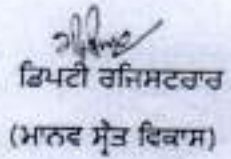 ਡਿਪਟੀ ਰਜਿਸਟਰਾਰ
(ਮਾਨਵ ਸ੍ਰੋਤ ਵਿਕਾਸ)